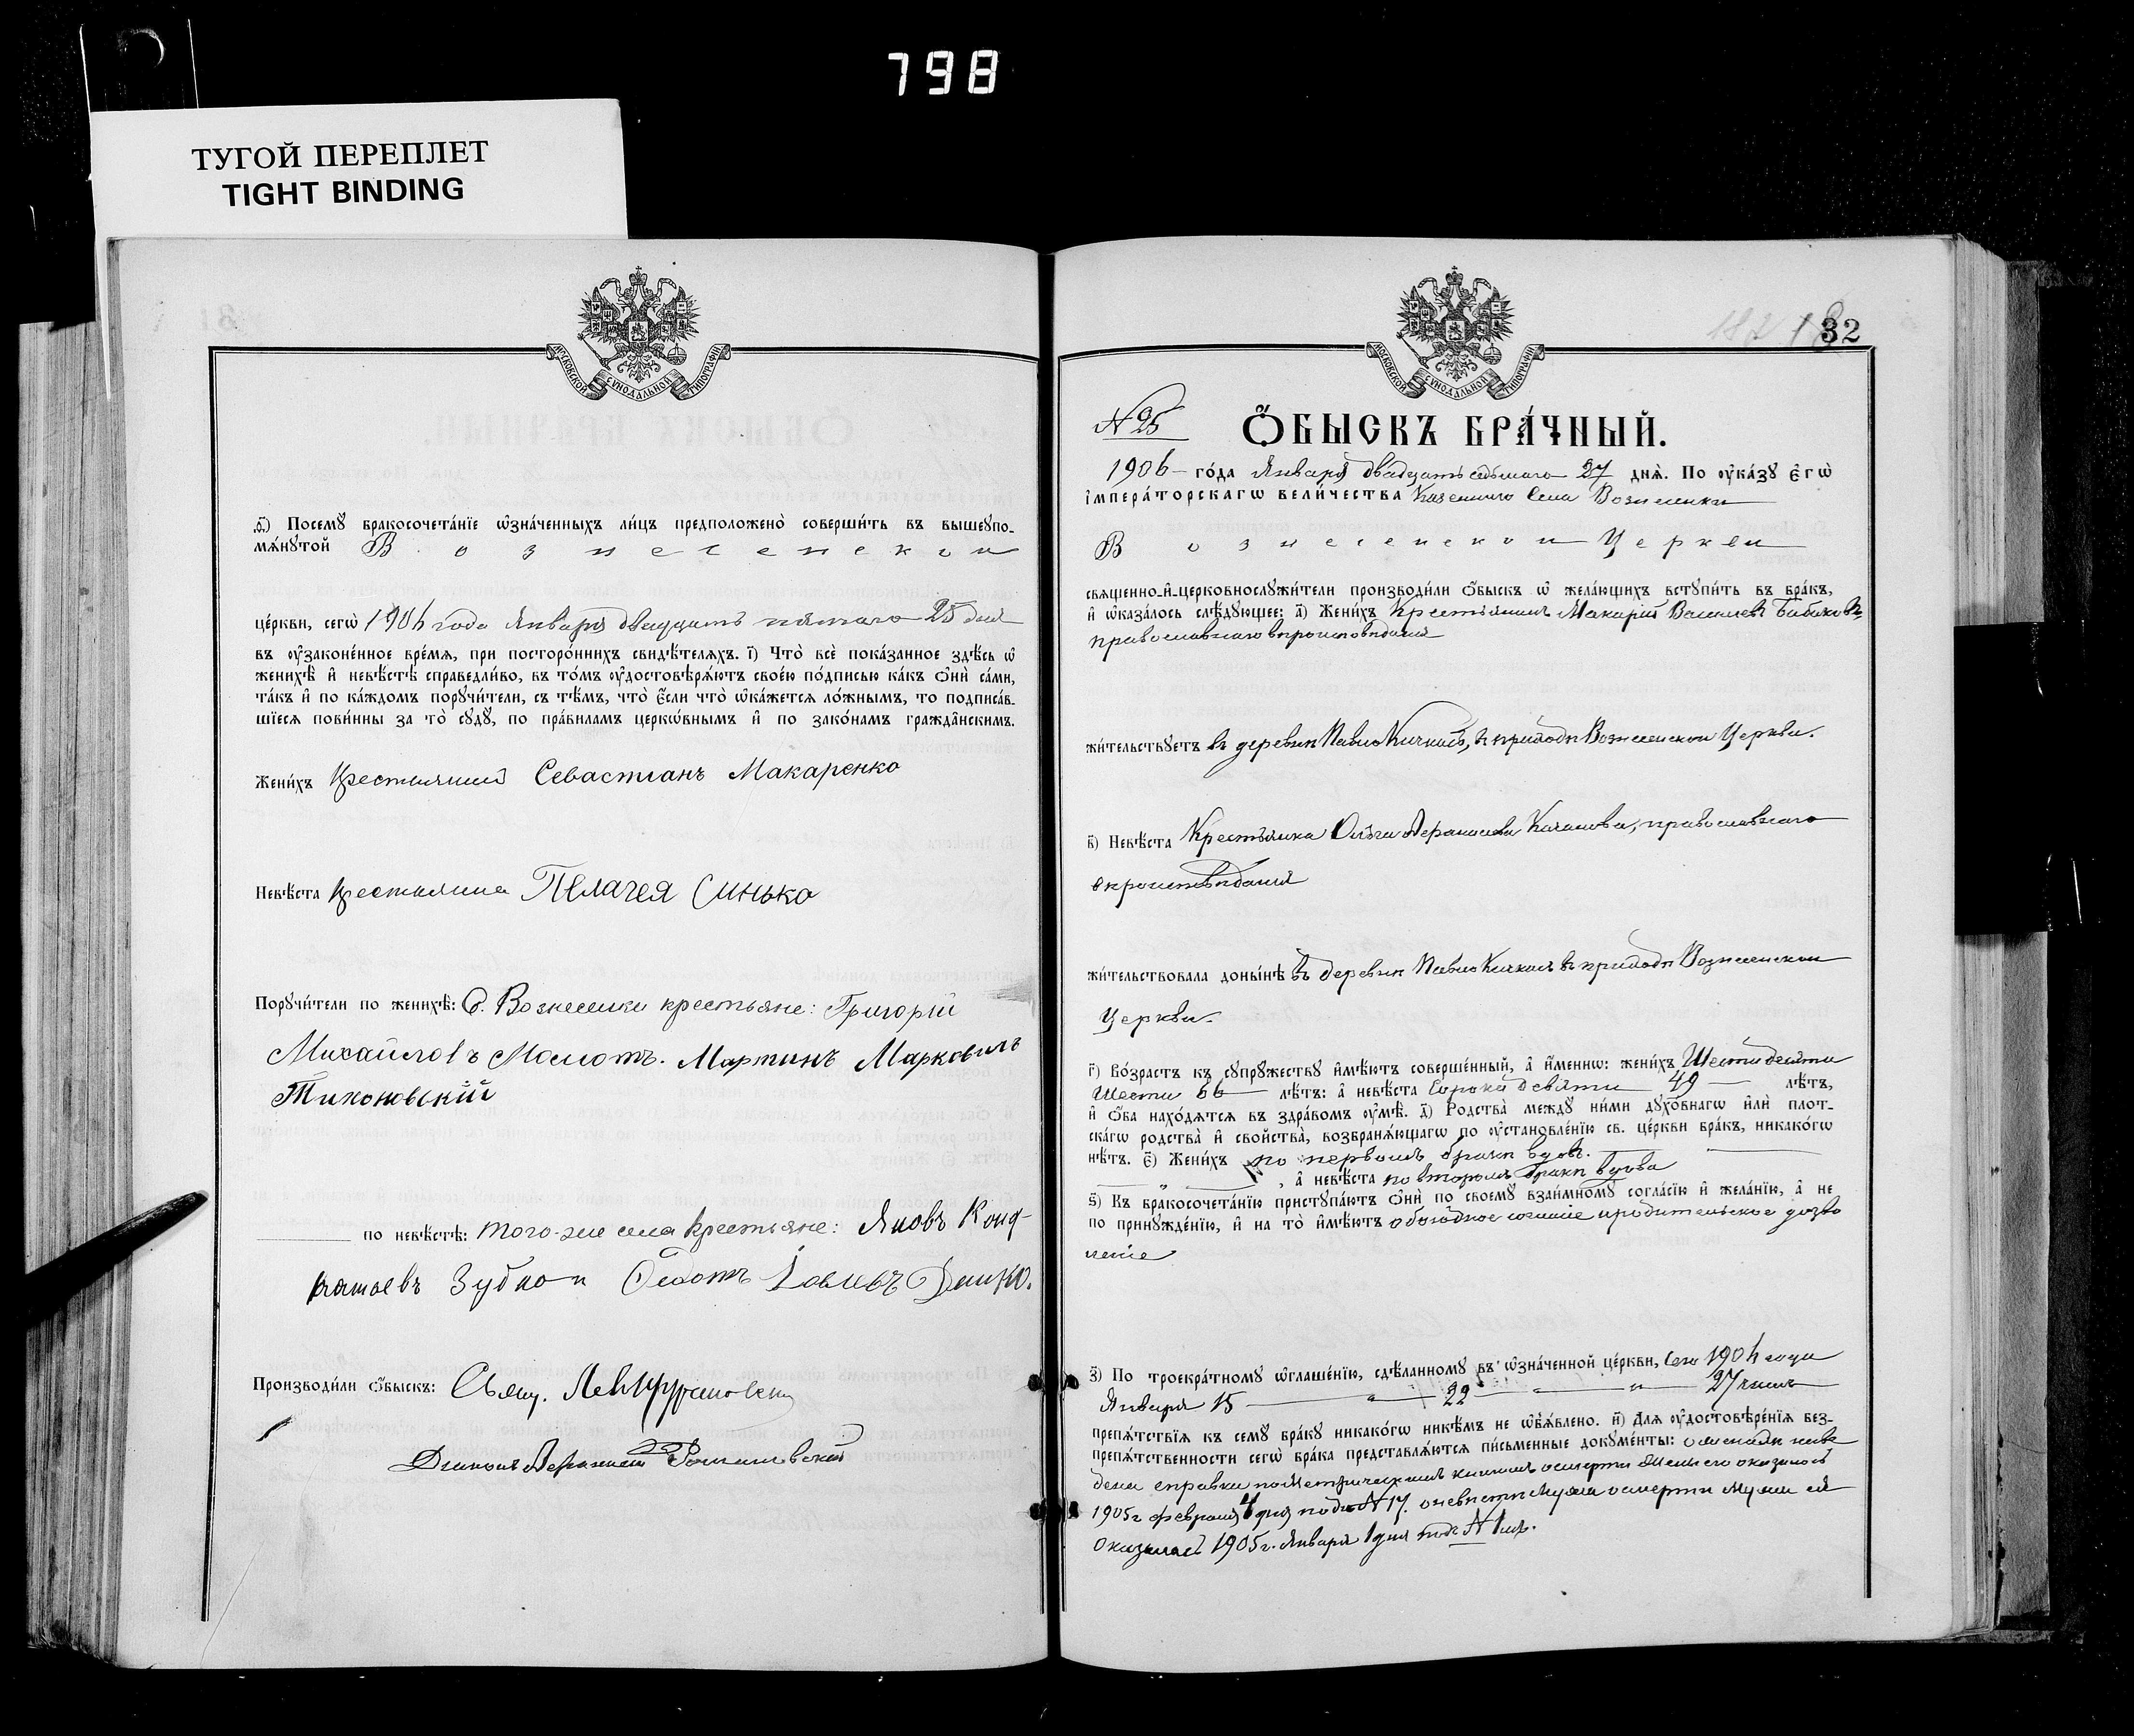 798
ТУГОЙ ПЕРЕПЛЕТ
TIGHT BINDING
МОСКОВСКОЙ СѴНОДАЛЬНОЙ ТИПОГРАФІИ
ѳ҃) Посемꙋ бракосочета́нїе ѡ҆зна́ченныхъ ли́цъ предположено̀ соверши́ть въ вышеꙋпо-
мѧ́нꙋтой Вознесенской
це́ркви, сегѡ̀ 1906 года Января двадцать пятаго 25 дня
въ ᲂу҆законе́нное вре́мѧ, при посторо́ннихъ свидѣ́телѧхъ. і҃) Что̀ всѐ пока́занное здѣ́сь ѡ҆
женихѣ̀ и҆ невѣ́стѣ справедли́во, въ то́мъ ᲂу҆достовѣрѧ́ютъ свое́ю по́дписью ка́къ ѻ҆нѝ са́ми,
та́къ и҆ по ка́ждомъ порꙋчи́тели, съ тѣ́мъ, что̀ є҆́сли что̀ ѡ҆ка́жется ло́жнымъ, то подписа́в-
шїеся пови́нны за то̀ сꙋдꙋ̀, по пра́виламъ церко́внымъ и҆ по зако́намъ гражда́нскимъ.
Жени́хъ Крестьянинъ Севастианъ Макаренко
Невѣ́ста Крестьянка Пелагея Синько
Порꙋчи́тели по женихѣ̀: С. Вознесенки крестьяне: Григорій
Михайловъ Молотъ. Мартинъ Марковичъ
Тихоновскій
по невѣ́стѣ: того-же села крестьяне: Яковъ Конд-
ратьевъ Зубко и Федотъ Іовлевъ
Производи́ли ѻ҆́быскъ: Свящ. Левъ
Діаконъ
32
МОСКОВСКОЙ СѴНОДАЛЬНОЙ ТИПОГРАФІИ
№ 25
Ѻ҆́БЫСКЪ БРА́ЧНЫЙ.
1906 го́да Января двадцать седьмаго 27 днѧ̀. По ᲂу҆ка́зꙋ є҆гѡ̀
і҆мпера́торскагѡ вели́чества Казеннаго Села Вознесенки
Вознесенской Церкви
свѧще́нно-и҆-церковнослꙋжи́тели производи́ли ѻ҆́быскъ ѡ҆ жела́ющихъ встꙋпи́ть въ бра́къ,
и҆ ѡ҆каза́лось слѣ́дꙋющее: а҃) Жени́хъ Крестьянинъ Макарій Васильевъ Бабаковъ,
православнаго вѣроисповѣданія
жи́тельствꙋетъ въ деревнѣ Павло Кичкасъ, въ приходѣ Вознесенской Церкви.
в҃) Невѣ́ста Крестьянка Ольга Афанасьева Качанова, православнаго
вѣроисповѣданія
жи́тельствовала доны́нѣ въ деревнѣ Павло Кичкасъ въ приходѣ Вознесенской
Церкви.
г҃) Во́зрастъ къ сꙋпрꙋ́жествꙋ и҆мѣ́ютъ соверше́нный, а҆ и҆́меннѡ: жени́хъ Шестидесяти
Шести 66 лѣ́тъ: а҆ невѣ́ста Сорока девяти 49 лѣ́тъ,
и҆ ѻ҆́ба нахо́дѧтся въ здра́вомъ ᲂу҆мѣ̀. д҃) Родства̀ междꙋ ни́ми дꙋхо́внагѡ и҆лѝ плот-
ска́гѡ родства̀ и҆ сво́йства̀, возбранѧ́ющагѡ по ᲂу҆становле́нїю св. це́ркви бра́къ, никако́гѡ
нѣ́тъ. є҃) Жени́хъ по первомъ бракѣ вдовъ.
, а҆ невѣ́ста по второмъ бракѣ вдова
ѕ҃) Къ бракосочета́нїю пристꙋпа́ютъ ѻ҆нѝ по своемꙋ̀ взаи́мномꙋ согла́сїю и҆ жела́нїю, а҆ не
по принꙋжде́нїю, и҆ на то̀ и҆мѣ́ютъ обоюдное согласіе и родительское дозво
леніе
з҃) По троекра́тномꙋ ѡ҆глаше́нїю, сдѣ́ланномꙋ въ ѡ҆зна́ченной це́ркви, сего 1906 года
Января 15 " 22 " " 27 чиселъ
препѧ́тствїѧ къ семꙋ̀ бра́кꙋ никако́гѡ никѣ́мъ не ѡ҆б̾ѧ́влено. и҃) Для ᲂу҆достовѣре́нїѧ без-
препѧ́тственности сегѡ̀ бра́ка представлѧ́ются пи́сьменные докꙋме́нты: о женихѣ наве
дена справка по Метрическимъ книгамъ о смерти Жены его оказалось
1905 г Февраля 4 дня подъ № 17. о невѣстѣ Мужа о смерти Мужа ея
оказалась 1905 г. Января 1 дня подъ № 1мъ.